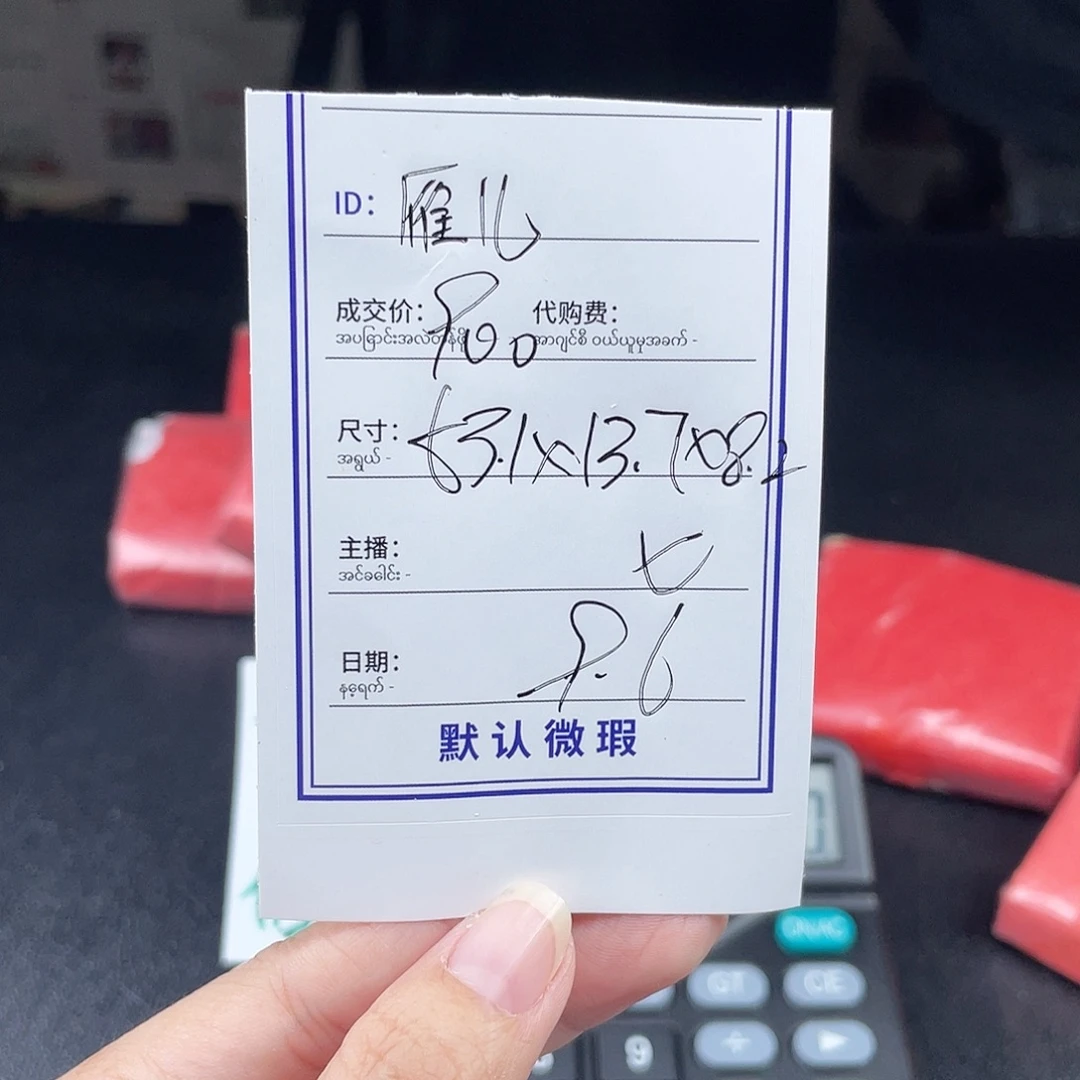 ID: 雁儿
成交价: 900 代购费:
အပြောင်းအလဲတန်ဖိုး - အာဂျင်စီ ဝယ်ယူမှုအခက် -
尺寸: 53.1×13.7×8.2
အရွယ် -
主播: 七
အင်ခေါင်း -
日期: 9.6
နေ့ရက် -
默认微瑕
GT CE
÷
9